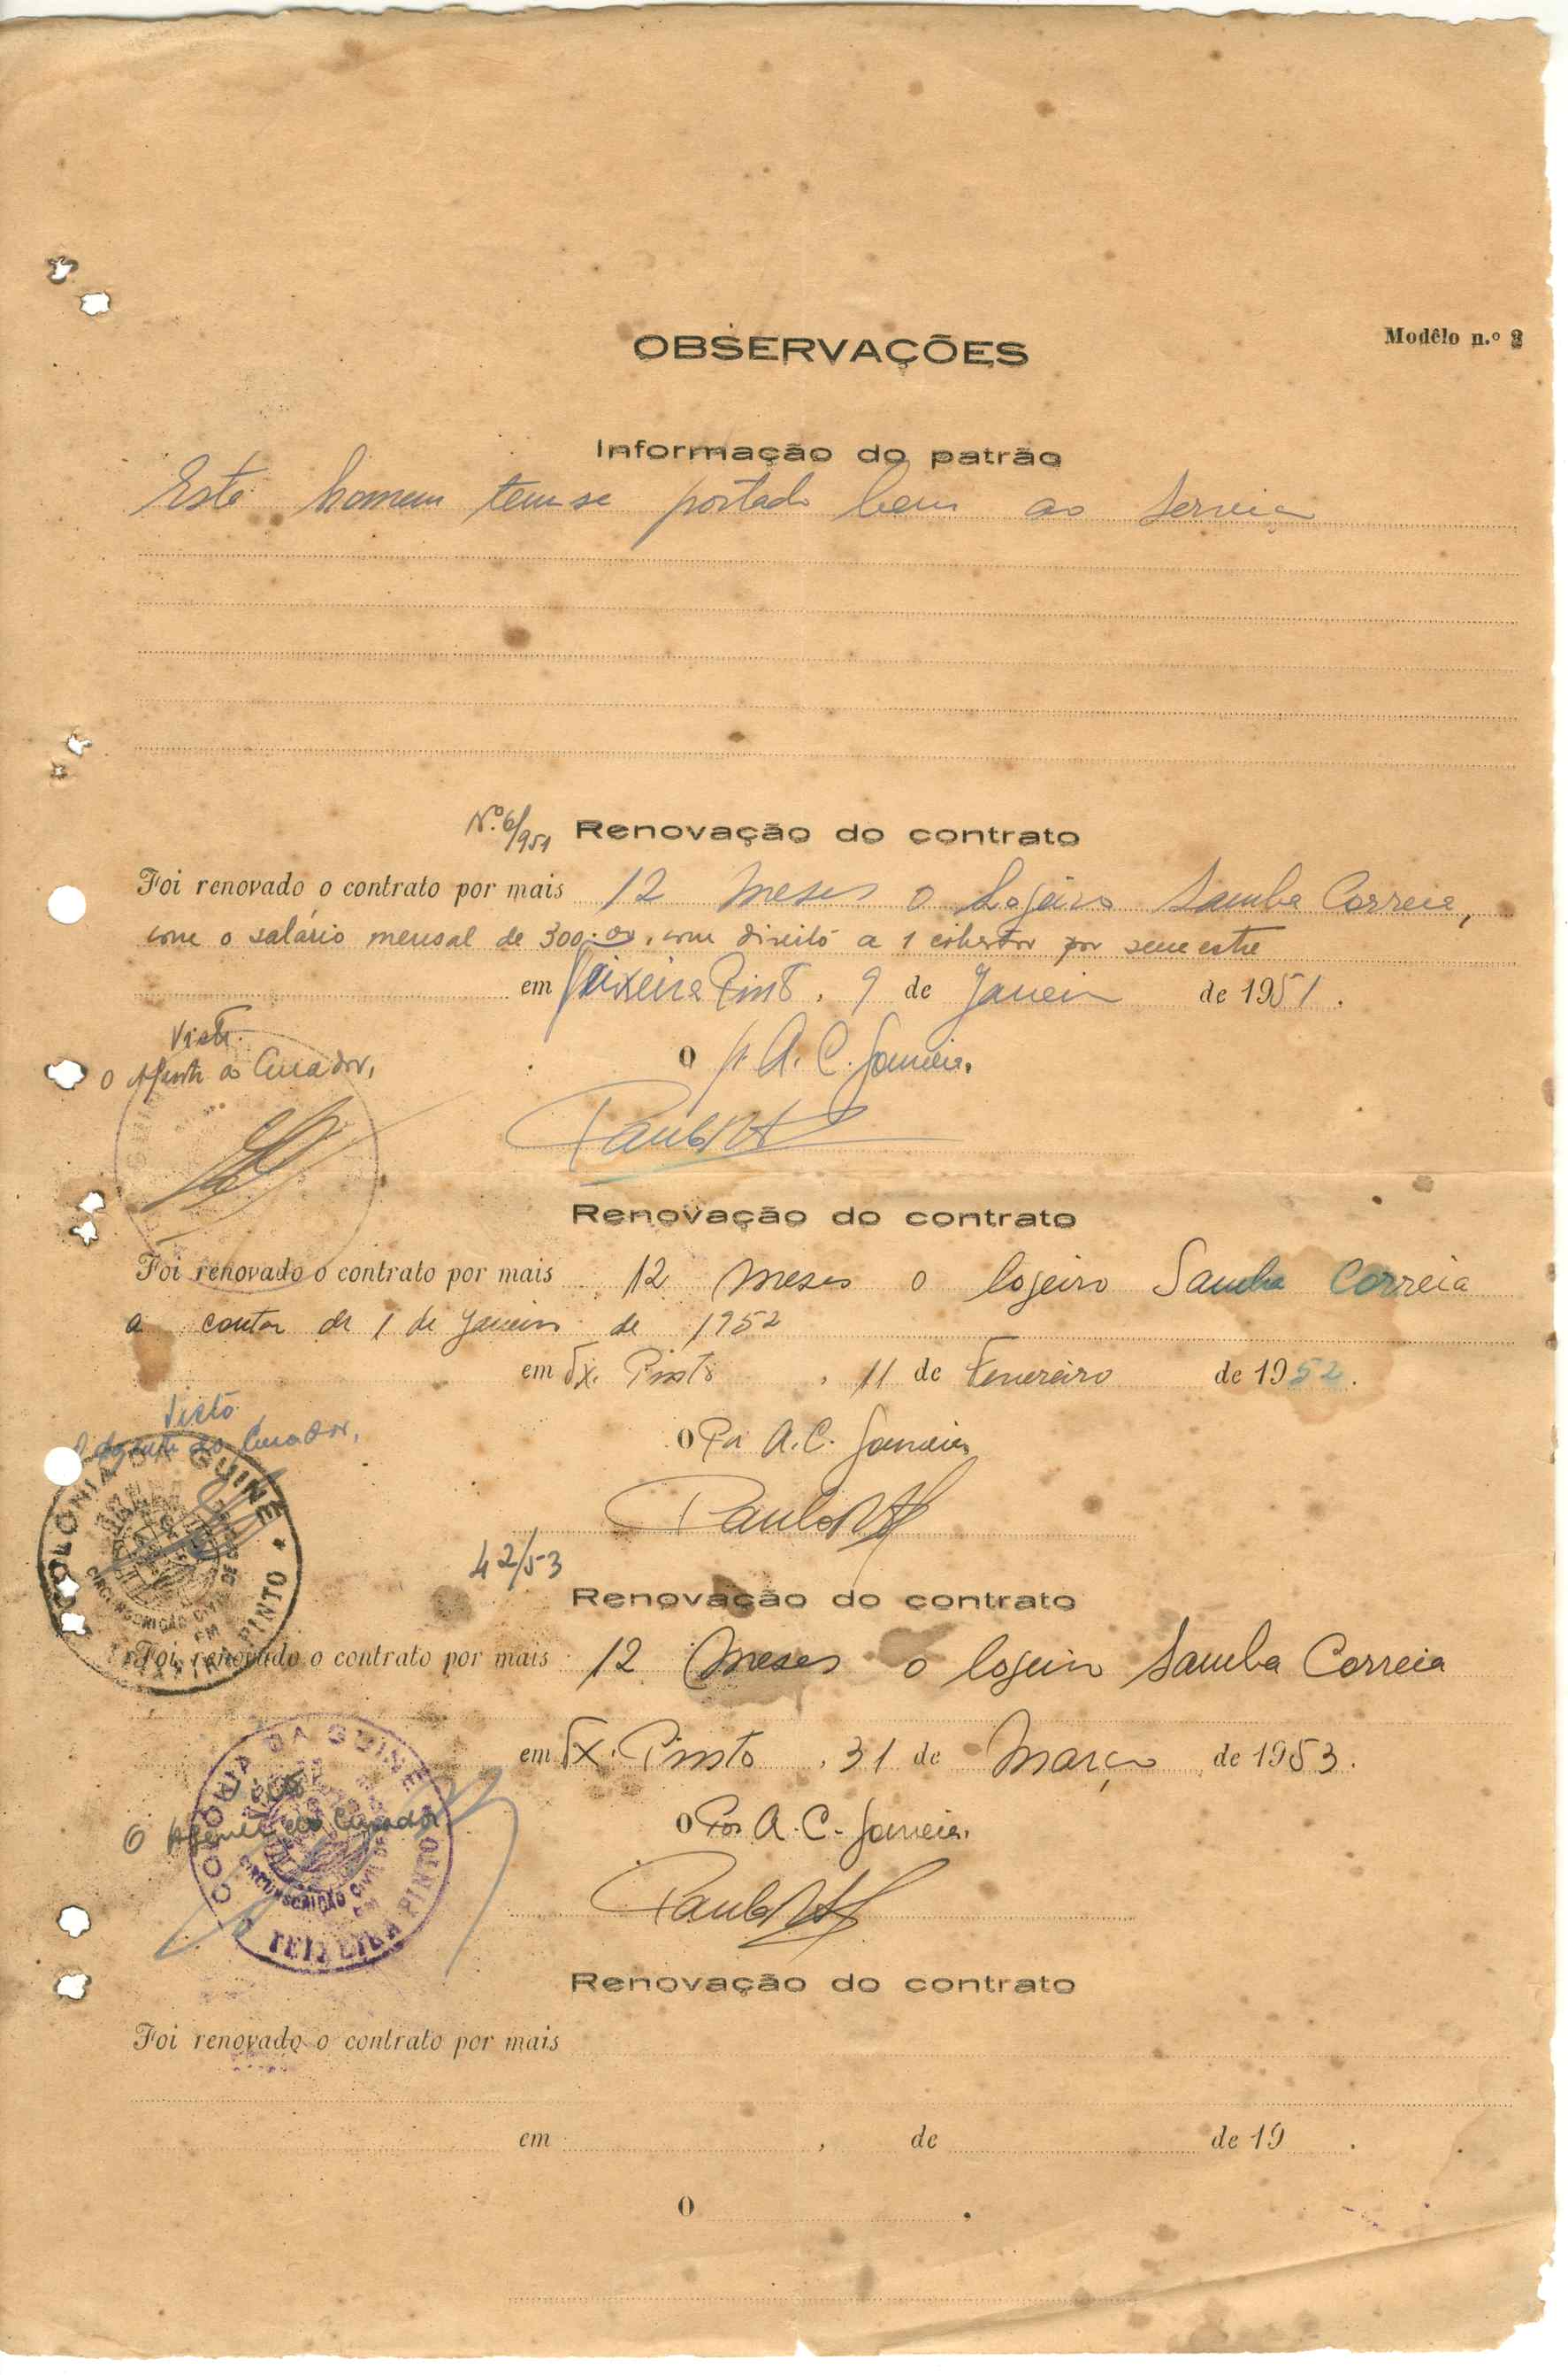 OBSERVAÇÕES
Modêlo n.º 2
Informação do patrão
Este homem tem-se portado bem ao serviço
N.º 6/951 Renovação do contrato
Foi renovado o contrato por mais 12 meses o Lojeiro Samba Correia,
com o salário mensal de 300.00, com direito a 1 cobertor por semestre
em Teixeira Pinto, 9 de Janeiro de 1951.
Visto
O Agente do Curador,
O p. A. C. Gouveia.
Renovação do contrato
Foi renovado o contrato por mais 12 meses o lojeiro Samba Correia
a contar de 1 de Janeiro de 1952
em Tx. Pinto, 11 de Fevereiro de 1952.
Visto
O Agente do Curador,
O Por A. C. Gouveia
COLONIA DA GUINÉ
CIRCUNSCRIÇÃO CIVIL DE
TEIXEIRA PINTO
42/53
Renovação do contrato
Foi renovado o contrato por mais 12 meses o lojeiro Samba Correia
em Tx. Pinto, 31 de Março de 1953.
Visto
O Agente do Curador
O Por A. C. Gouveia.
COLONIA DA GUINÉ
CIRCUNSCRIÇÃO CIVIL
EM
TEIXEIRA PINTO
Renovação do contrato
Foi renovado o contrato por mais
em , de de 19 .
O .